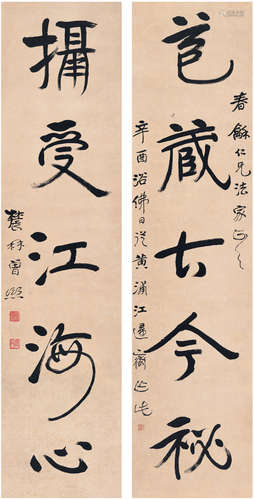 苞藏古今秘
春仁兄法家正之
辛酉浴佛日從黃浦江還齋作此
攝受江海心
農髯曾熙